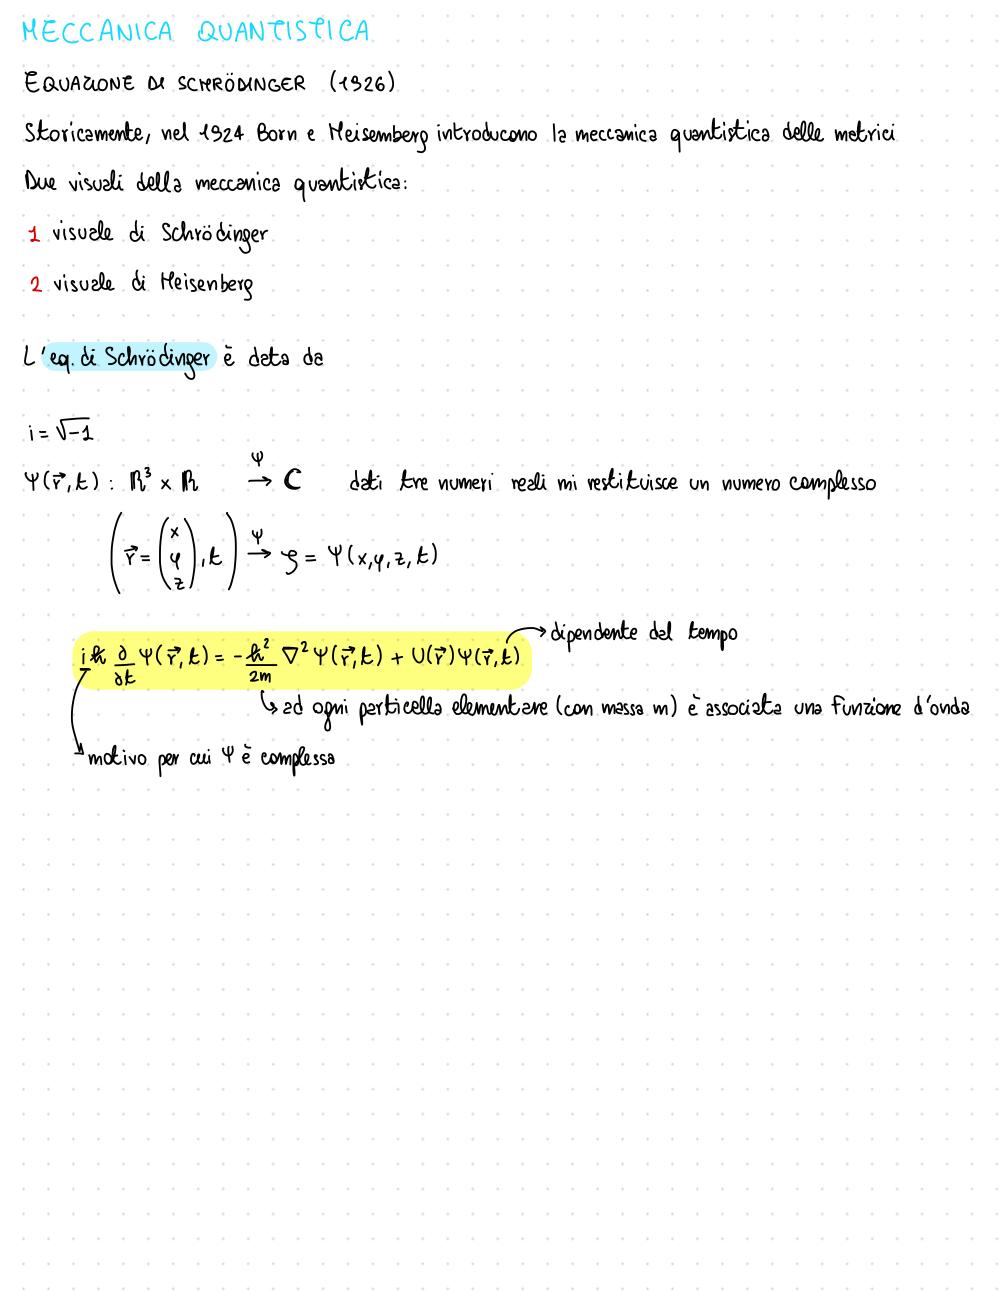 MECCANICA QUANTISTICA
EQUAZIONE DI SCHRÖDINGER (1926)
Storicamente, nel 1924 Born e Heisemberg introducono la meccanica quantistica delle matrici
Due visuali della meccanica quantistica:
1 visuale di Schrödinger
2 visuale di Heisenberg
L'eq. di Schrödinger è data da
i = √-1
Ψ(r⃗,t) : ℝ³ × ℝ →^Ψ ℂ dati tre numeri reali mi restituisce un numero complesso
(r⃗ = (x y z), t) →^Ψ ζ = Ψ(x,y,z,t)
iℏ ∂/∂t Ψ(r⃗,t) = -ℏ²/2m ∇²Ψ(r⃗,t) + U(r⃗)Ψ(r⃗,t) → dipendente dal tempo
↳ ad ogni particella elementare (con massa m) è associata una funzione d'onda
motivo per cui Ψ è complessa